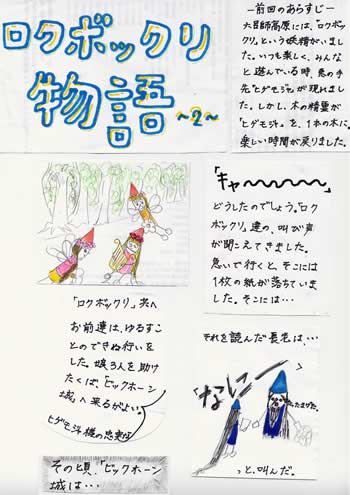 ロクボックリ
物語 ~2~
ー前回のあらすじー
大百師高原には、「ロクボッ
クリ」という妖精がいまし
た。いつも楽しく、みんな
と遊んでいる時、悪の手
先「ヒゲモジャ」が現れまし
た。しかし、木の精霊が
「ヒゲモジャ」を、1本の木に。
楽しい時間が戻りました。
「キャ〜〜〜〜」
どうしたのでしょう。「ロク
ボックリ」達の、叫び声
が聞こえてきました。
急いで行くと、そこには
1枚の紙が落ちていま
した。そこには・・・
「ロクボックリ」共へ
お前達は、ゆるすこ
とのできぬ行いを
した。娘3人を助け
たくば、「ビックホーン
城」へ来るがよい。
ヒゲモジャ様の忠実な
それを読んだ長老は、・・・
「なにー
たまげた。
っと、叫んだ。
その頃、「ビックホーン
城は・・・